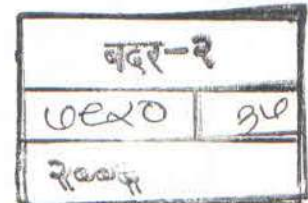 बदर-२
७९४० ३७
२००५